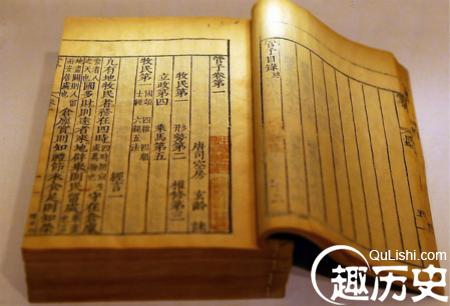 管子目錄終
管子卷第一
唐司空房 玄齡 註
牧民第一 形勢第二 權修第三
立政第四 乘馬第五
牧民第一 國頌 四維 四順 士經 六親五法 經言一
凡有地牧民者務在四時 守在倉廩
國多財則遠者來地辟舉則民留處
倉廩實則知禮節衣食足則知榮
QuLishi.com
趣历史